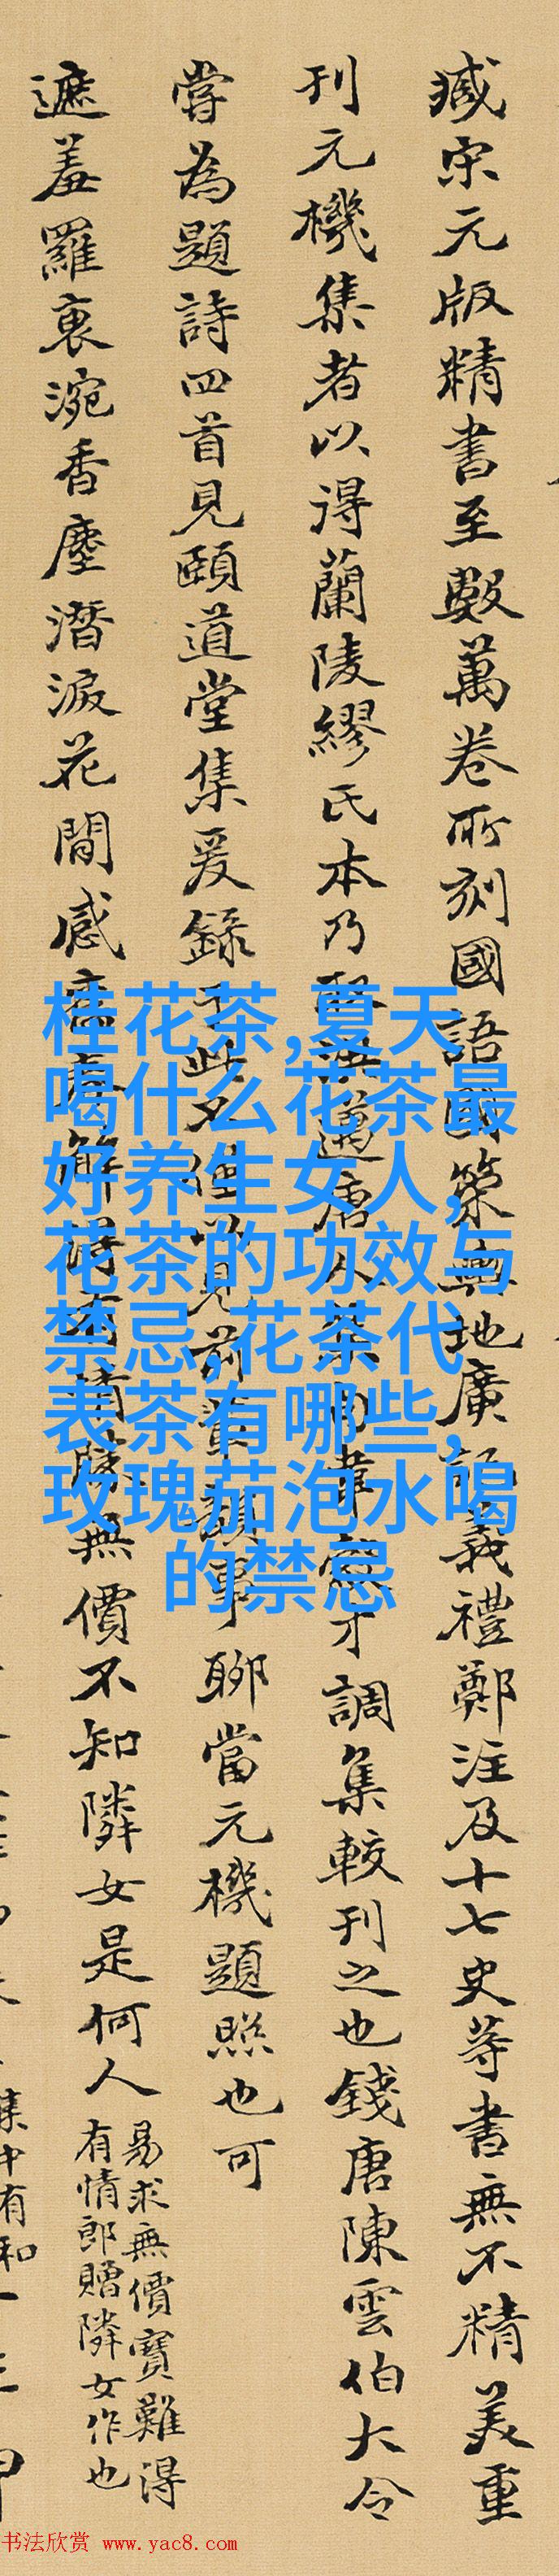 臧宋元版精書至數萬卷所刻國語國策無地廣記義禮鄭注及十七史等書無不精美重
刊元機集者以得蘭陵繆氏本乃 唐人 才調集較刊之也錢唐陳雲伯大令
嘗為題詩四首見頤道堂集爰錄于此 見前輩韻事聊當元機題照也可
遮羞羅裏涴香塵潛淚花間感 解得有情 無價不知隣女是何人
易求無價寶難得
有情郎贈隣女作也
桂花茶,夏天
喝什么花茶最
好养生女人,
花茶的功效与
禁忌,花茶代
表茶有哪些,
玫瑰茄泡水喝
的禁忌
书法欣赏 www.yac8.com